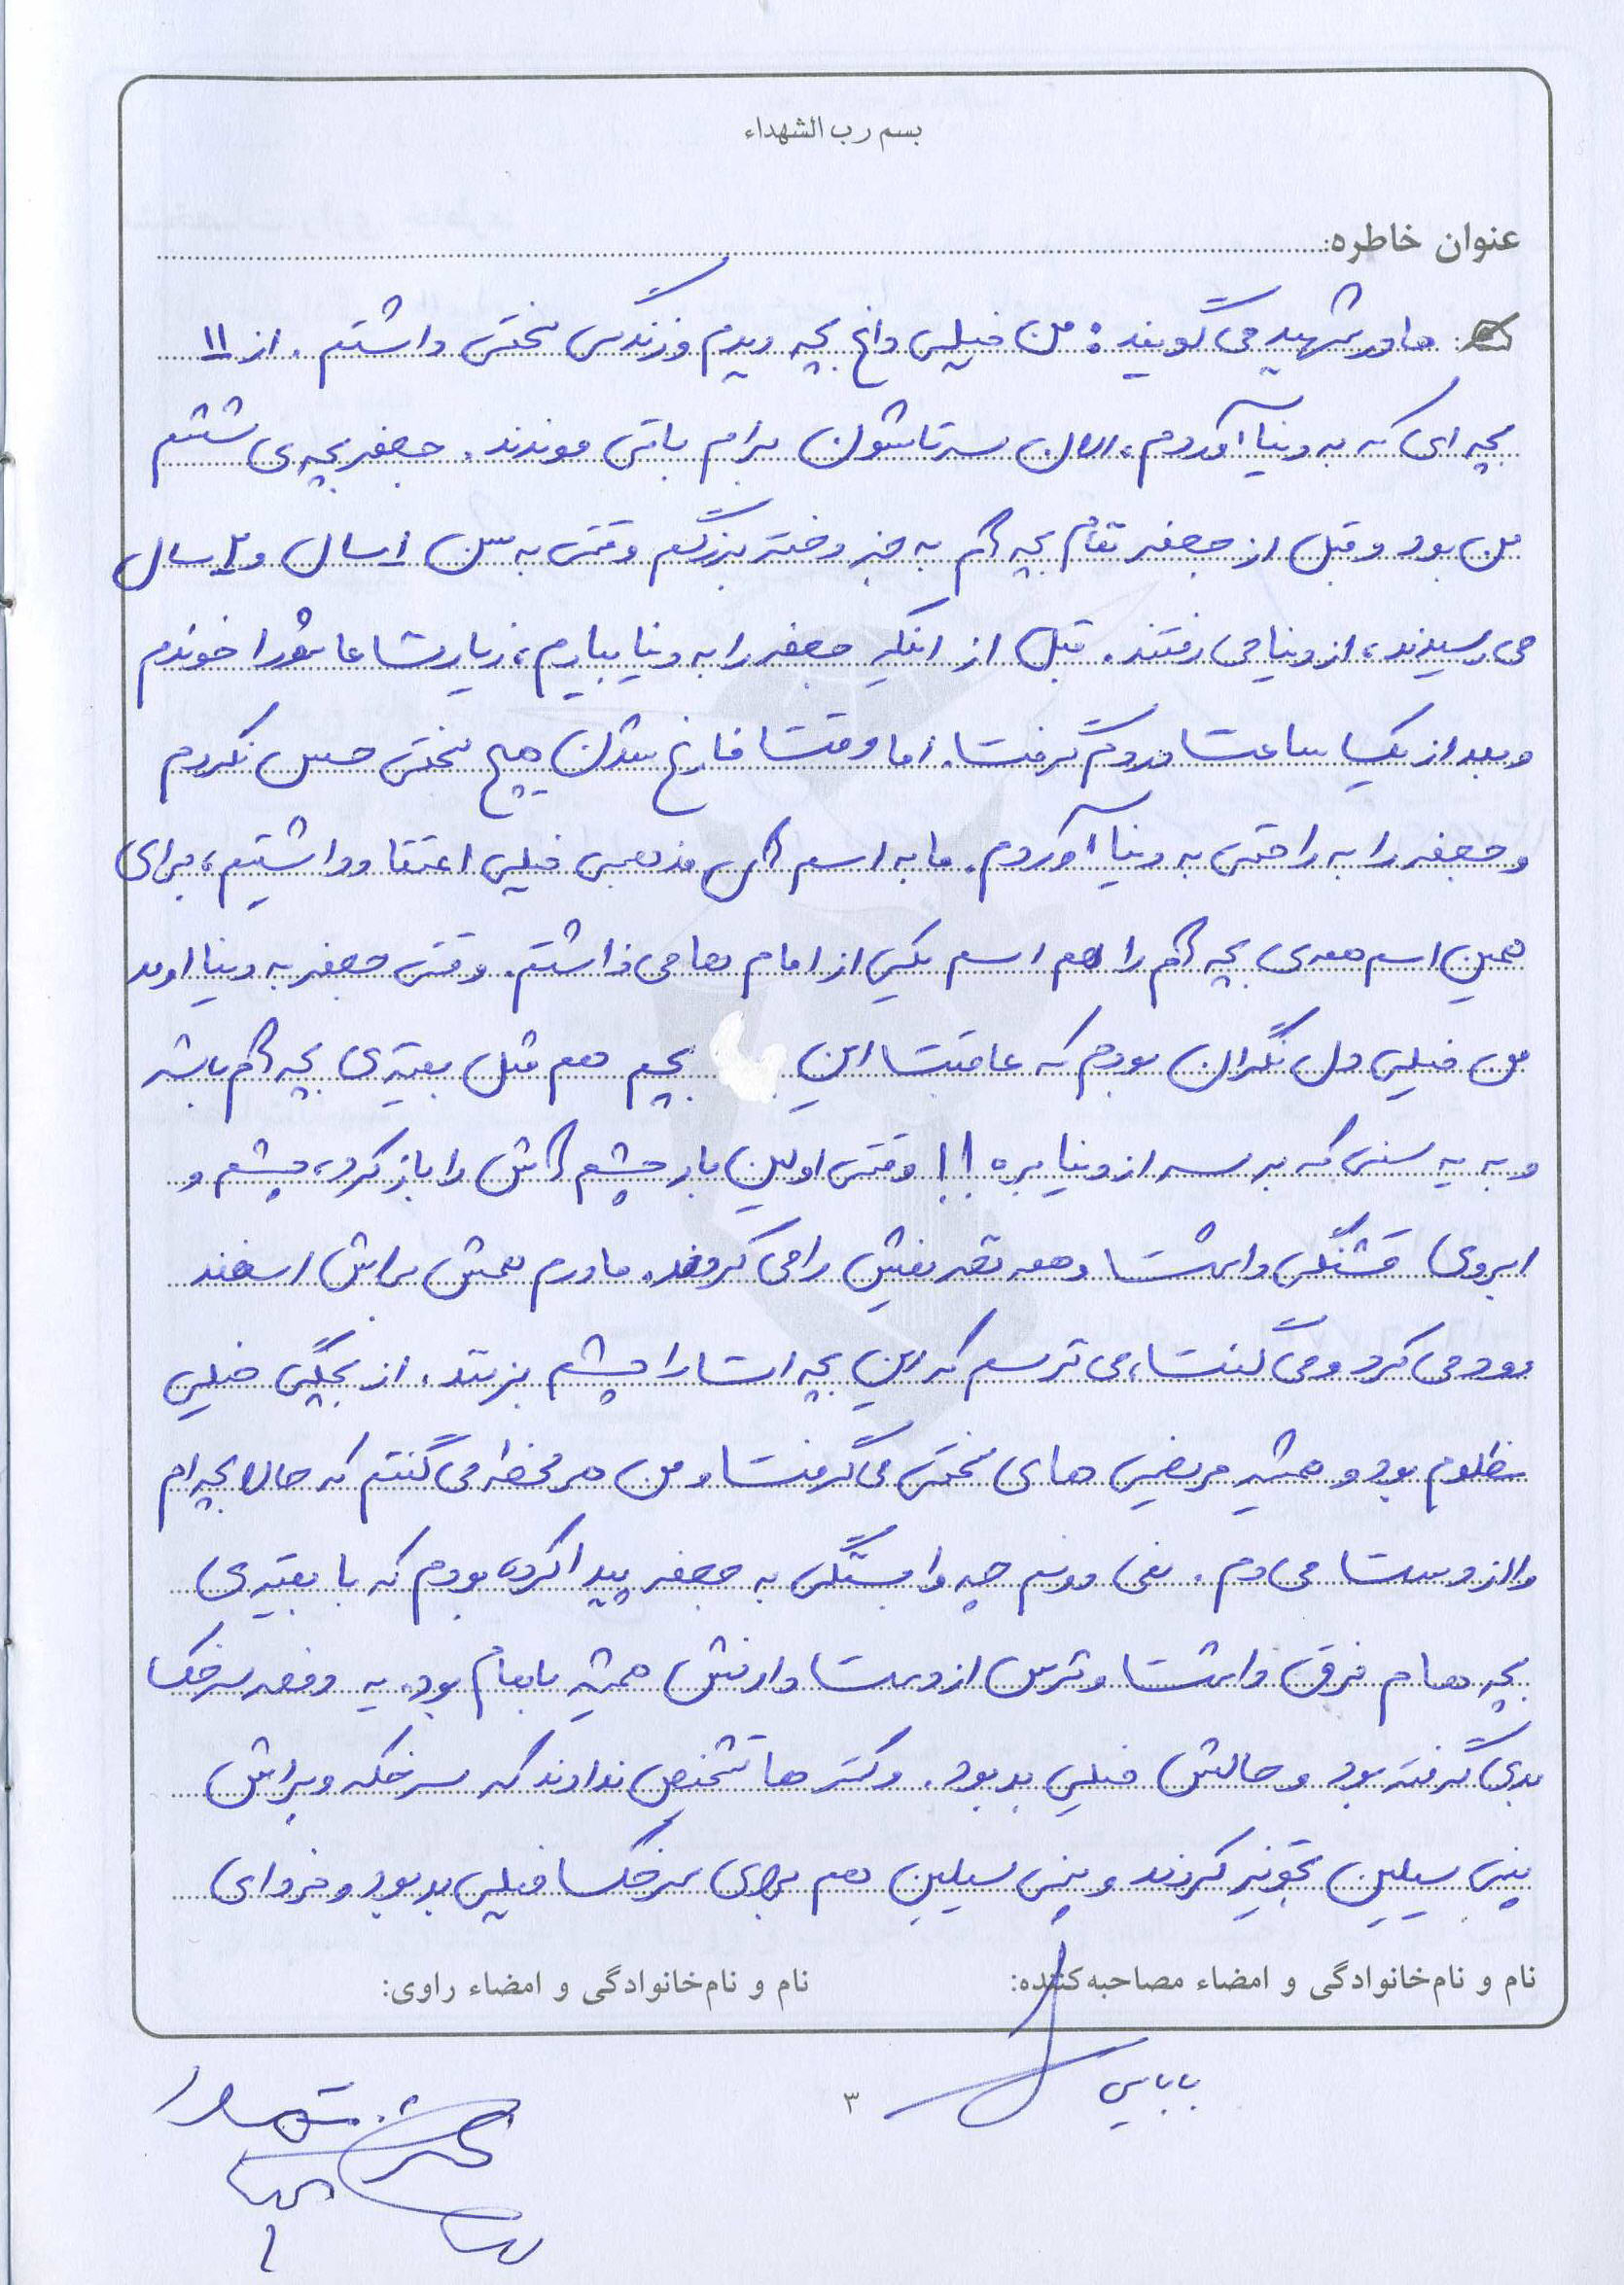 بسم رب الشهداء
عنوان خاطره:
مادر شهید می گویند: من خیلی داغ بچه دیدم و زندگی سختی داشتم. از ۱۱
بچه ای که به دنیا آوردم، الان سه تاشون برام باقی موندند. جعفر بچه ی ششم
من بود و قبل از جعفر تمام بچه هام به جز دختر بزرگم وقتی به سن ۱ سال و ۲ سال
می رسیدند، از دنیا می رفتند. قبل از اینکه جعفر را به دنیا بیارم، زیارت عاشورا خوندم
و بعد از یک ساعت دردم گرفت. اما وقت فارغ شدن هیچ سختی حس نکردم
و جعفر را به راحتی به دنیا آوردم. ما به اسم های مذهبی خیلی اعتقاد داشتیم، برای
همین اسم همه ی بچه هام را هم اسم یکی از امام ها می ذاشتم. وقتی جعفر به دنیا اومد
من خیلی دل نگران بودم که عاقبت این بچم هم مثل بقیه ی بچه هام باشه
و به یه سنی که برسه از دنیا بره!! وقتی اولین بار چشم هاش را باز کرد، چشم و
ابروی قشنگی داشت و همه تعریفش را می کردند. مادرم همش براش اسفند
دود می کرد و می گفت، می ترسم که این بچه ات را چشم بزنند. از بچگی خیلی
مظلوم بود و همیشه مریضی های سختی می گرفت و من هر لحظه می گفتم که حالا بچه ام
را از دست می دم. نمی دونم چه وابستگی به جعفر پیدا کرده بودم که با بقیه ی
بچه هام فرق داشت و ترس از دست دادنش همیشه باهام بود. یه دفعه سرخک
بدی گرفته بود و حالش خیلی بد بود. دکتر ها تشخیص ندادند که سرخکه و براش
پنی سیلین تجویز کردند و پنی سیلین هم برای سرخک خیلی بد بود و فردای
نام و نام‌خانوادگی و امضاء مصاحبه‌کننده:
نام و نام‌خانوادگی و امضاء راوی:
بابایی
۳